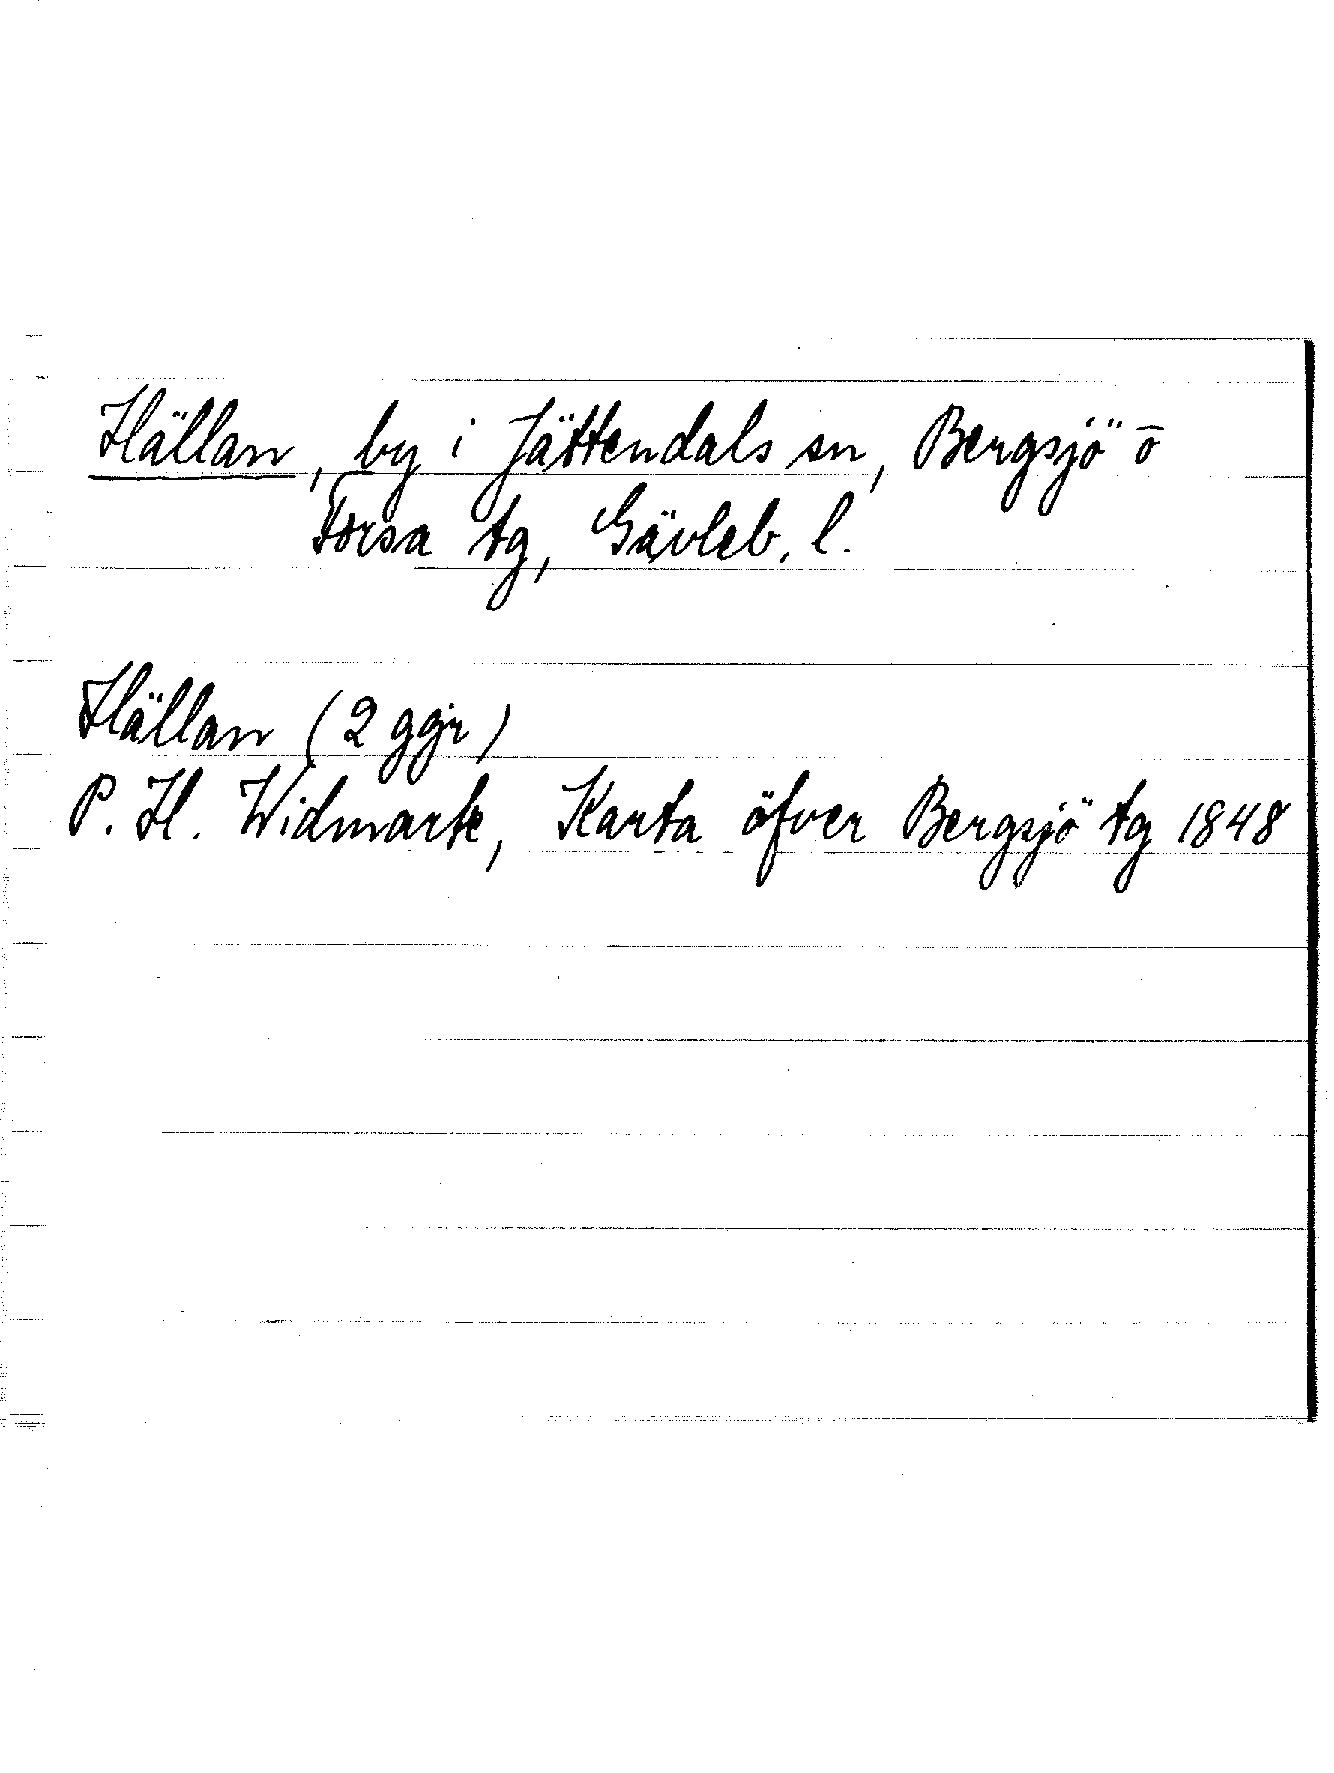 Hällan, by i Jättendals sn, Bergsjö o
Forsa tg, Gävleb. l.
Hällan (2 ggr)
P. H. Widmark, Karta öfver Bergsjö tg 1848